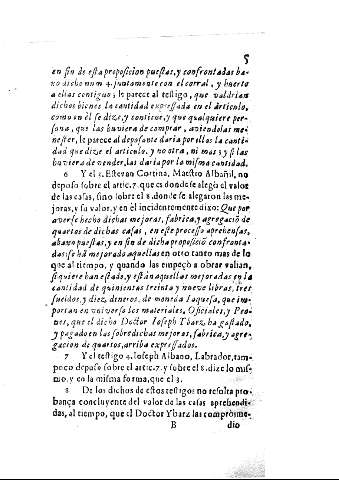 5
en fin de esta proposicion puestas, y confrontadas ba-
xo dicho num 4. juntamente con el corral, y huerto
a ellas contiguo; le parece al testigo, que valdrian
dichos bienes la cantidad expressada en el articulo,
como en èl se dize, y contiene, y que qualquiere per-
sona, que las huviera de comprar, aviendolas me-
nester, le parece al deposante daria por ellas la canti-
dad que dize el articulo, y no otra, ni mas; y si las
huviera de vender, las daria por la misma cantidad.
6 Y el 3. Estevan Cortina, Maestro Albañil, no
deposo sobre el artic. 7. que es donde se alegò el valor
de las casas, sino sobre el 8. donde se alegaron las me-
joras, y su valor, y en èl incidentemente dixo: Que por
averse hecho dichas mejoras, fabrica, y agregaciõ de
quartos de dichas casas, en este processo aprehensas,
abaxo puestas, y en fin de dicha proposiciõ confronta-
das; se hà mejorado aquellas en otro tanto mas de lo
que al tiempo, y quando las empeçò a obrar valian,
si quiere han estado, y estàn aquellas mejoradas en la
cantidad de quinientas treinta y nueve libras, tres
sueldos, y diez, dineros, de moneda Iaquesa, que im-
portan en universo los materiales, Oficiales, y Peo-
nes, que el dicho Doctor Ioseph Ybarz ha gastado,
y pagado en las sobredichas mejoras, fabrica, y agre-
gacion de quartos, arriba expressados.
7 Y el testigo 4. Ioseph Albano, Labrador, tam-
poco deposo sobre el artic. 7. y sobre el 8. dize lo mis-
mo, y en la misma forma, que el 3.
8 De los dichos de estos testigos no resulta pro-
bança concluyente del valor de las casas aprehendi-
das, al tiempo, que el Doctor Ybarz las comprò me-
B dio